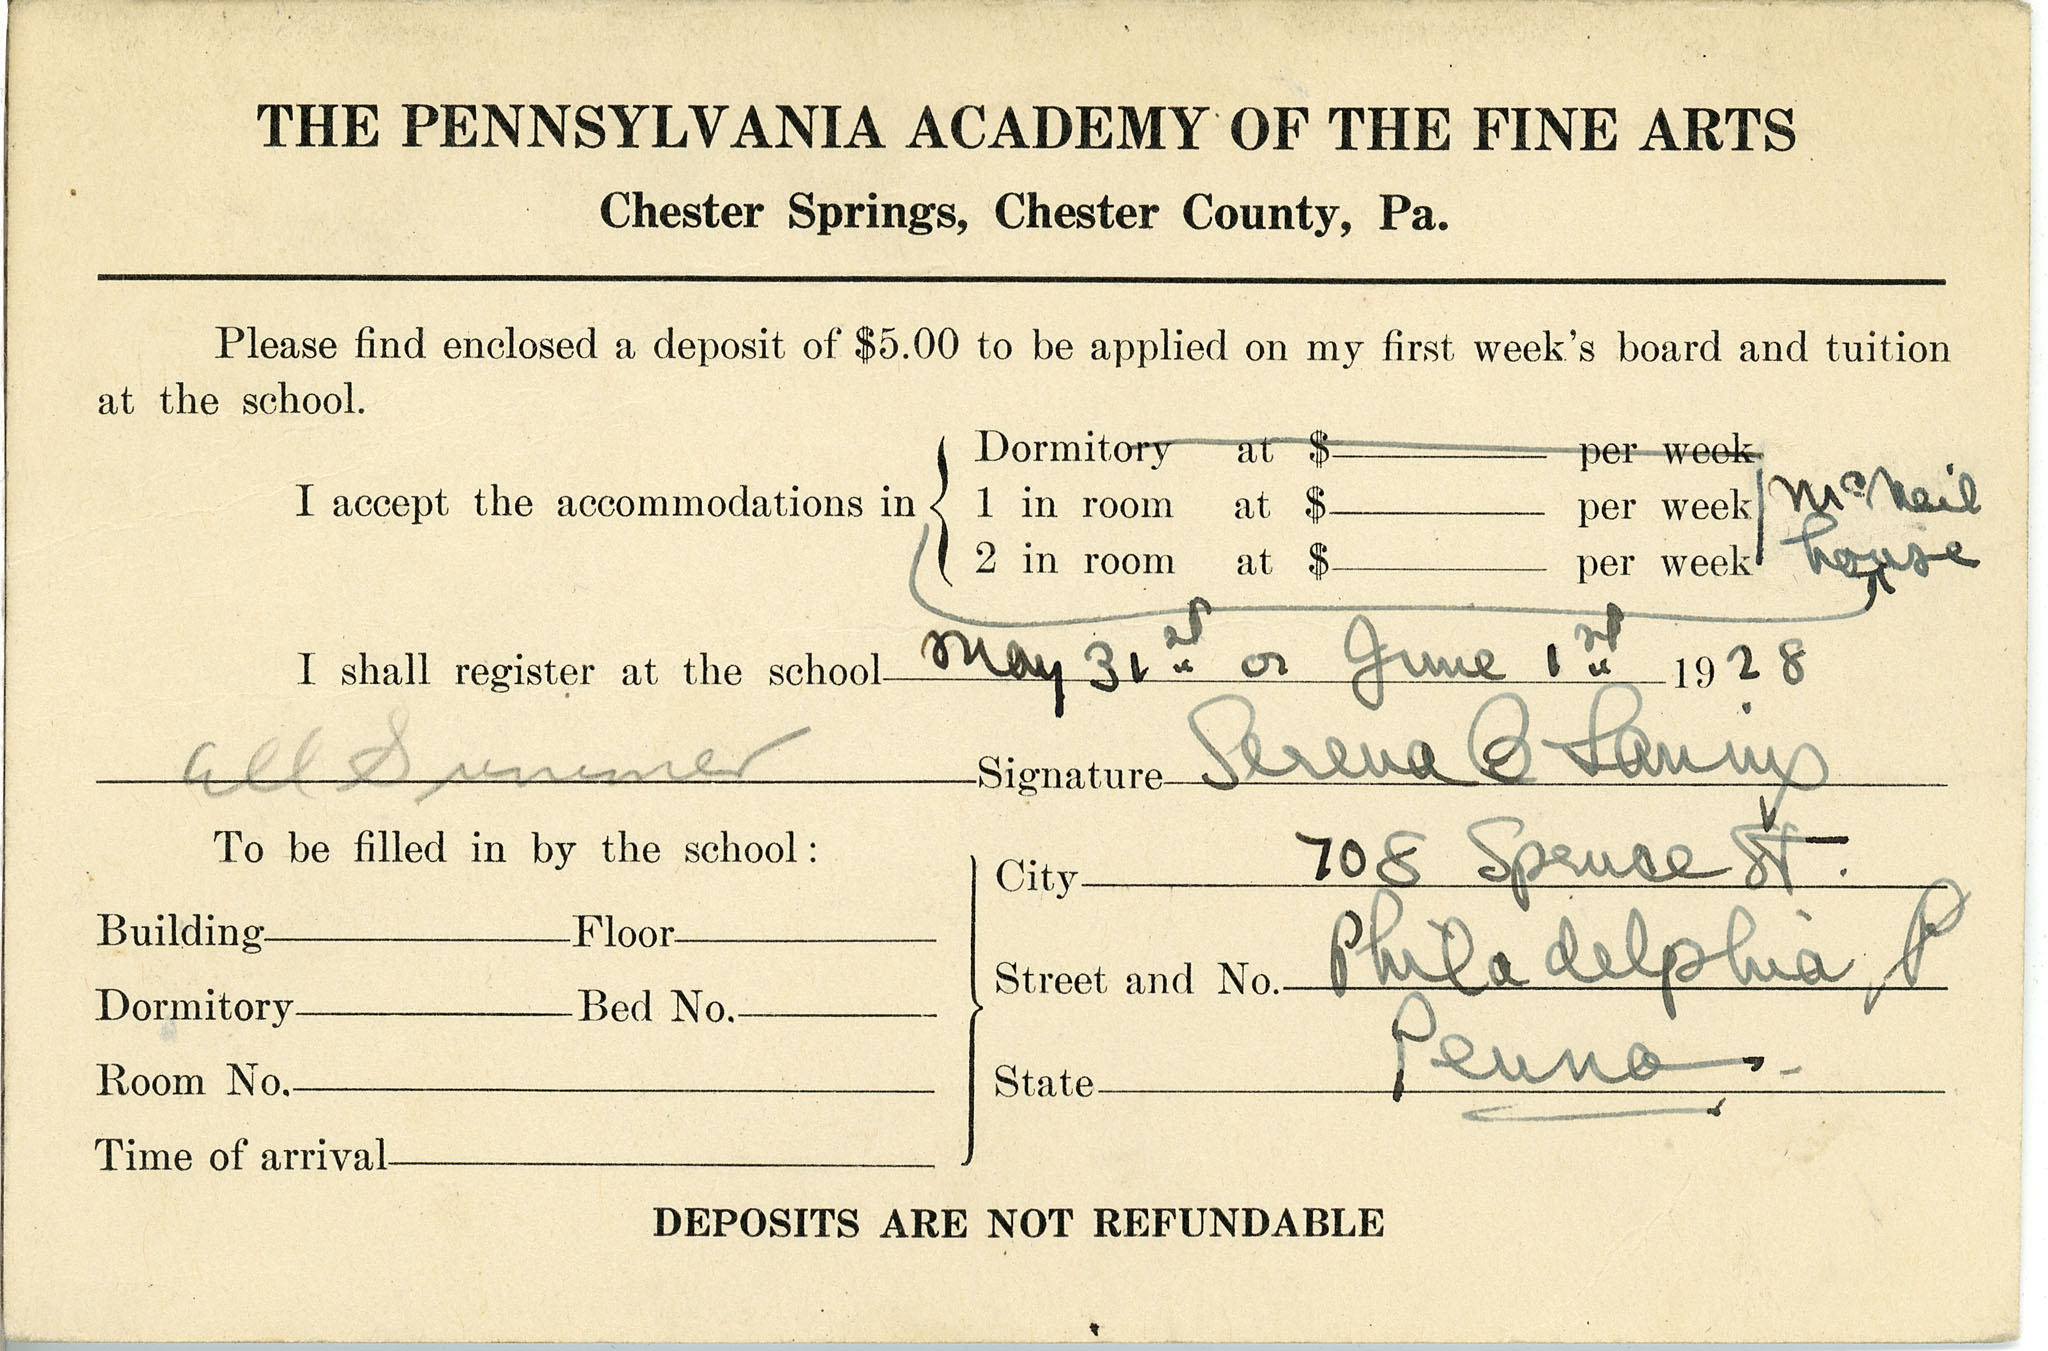 THE PENNSYLVANIA ACADEMY OF THE FINE ARTS
Chester Springs, Chester County, Pa.
Please find enclosed a deposit of $5.00 to be applied on my first week's board and tuition
at the school.
I accept the accommodations in
Dormitory at $ per week
1 in room at $ per week
2 in room at $ per week
McNeil
house
I shall register at the school May 31st or June 1st 1928
all Summer Signature Serena B
To be filled in by the school:
City 708 Spruce St.
Building Floor
Street and No. Philadelphia, P
Dormitory Bed No.
State Penna
Room No.
Time of arrival
DEPOSITS ARE NOT REFUNDABLE